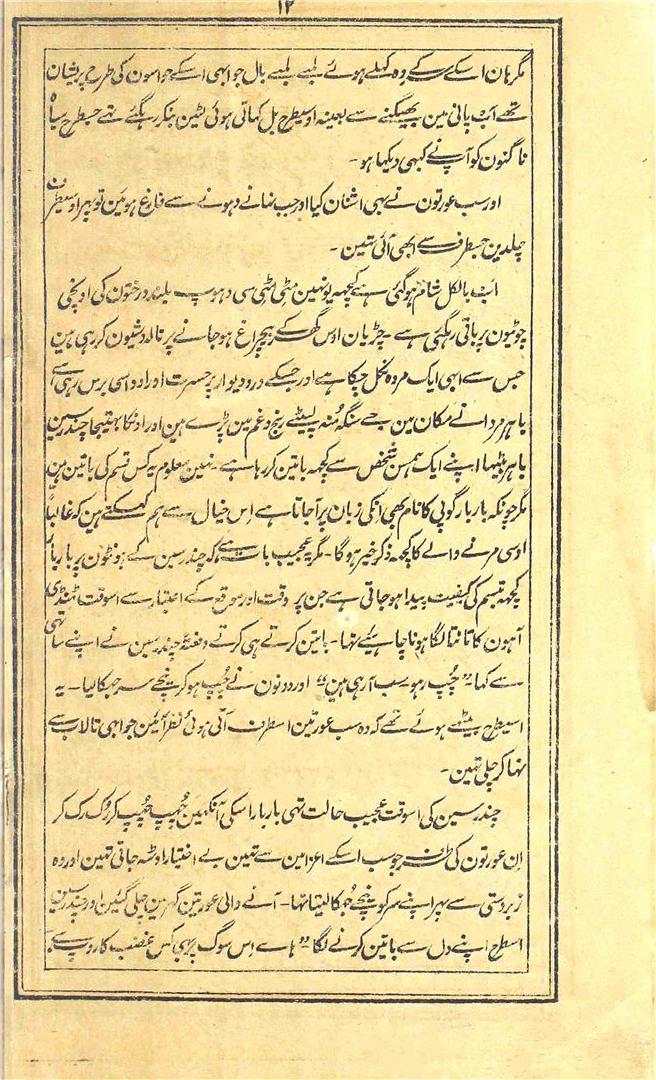 ۱۲
مگر ہان اسکے سر کے وہ کہلے ہوئے لمبے لمبے بال جو ابہی اسکے حواسون کی طرح پریشان
تھے اب پانی مین بھیگنے سے بعینہ اوسیطرح بل کہاتی ہوئی لٹین بنکر رہگئے تہے جسطرح سیاہ
ناگنون کو آپ نے کبہی دیکہا ہو۔
اور سب عورتون نے بہی اشنان کیا اور جب نہانے دہونے سے فارغ ہوئین تو پہر اوسیطرف
چلدین جسطرف سے ابھی آئی تہین۔
اب بالکل شام ہوگئی ہے کچہہ یونہین مٹی مٹی سی دہوپ بلند درختون کی اونچی
چوٹیون پر باقی رہگئی ہے۔ چڑیان اوس گھر کے بیچراغ ہوجانے پر نالہ و شیون کر رہی ہین
جس سے ابہی ایک مردہ نکل چکا ہے اور جسکے در و دیوار پر حسرت اور اوداسی برس رہی ہے
باہر مردانے مکان مین جے سنگہ مُنہ لپیٹے رنج و غم مین پڑے ہین اور اونکا بہتیجا چندرسین
باہر بیٹہا اپنے ایک ہمسن شخص سے کچہہ باتین کر رہا ہے۔ نہین معلوم یہ کس قسم کی باتین ہین
مگر چونکہ بار بار گوپی کا نام بھی انکی زبان پر آجاتا ہے اِس خیال سے ہم کہسکتے ہین کہ غالباً
اوسی مرنے والے کا کچہہ ذکر خیر ہوگا۔ مگر یہ عجیب بات ہے کہ چندرسین کے ہونٹون پر بار بار
کچہہ تبسم کی کیفیت پیدا ہوجاتی ہے جن پر وقت اور موقع کے اعتبار سے اسوقت ٹہنڈی
آہون کا تانتا لگا ہونا چاہئے تہا۔ باتین کرتے ہی کرتے دفعۃً چندرسین نے اپنے ساتہی
سے کہا۔ "چُپ رہو سب آرہی ہین" اور دونون نے چُپ ہوکر نیچے سر جہکا لیا۔ یہ
اسیطرح بیٹہے ہوئے تھے کہ وہ سب عورتین اسطرف آتی ہوئی نظر آئین جو ابہی تالاب سے
نہا کر چلی تہین۔
چندرسین کی اسوقت عجیب حالت تہی بار بار اسکی آنکہین چُہپ چُہپ کر رُک رک کر
اِن عورتون کی طرف جو سب اسکے اعزا مین سے تہین بے اختیار اوٹہہ جاتی تہین اور وہ
زبردستی سے پہر اپنے سر کو نیچے جُہکا لیتا تہا۔ آنے والی عورتین گہر مین چلی گئین اور چندرسین
اسطرح اپنے دل سے باتین کرنے لگا۔ "ہاے اِس سوگ پر بہی کس غضب کا روپ ہے۔